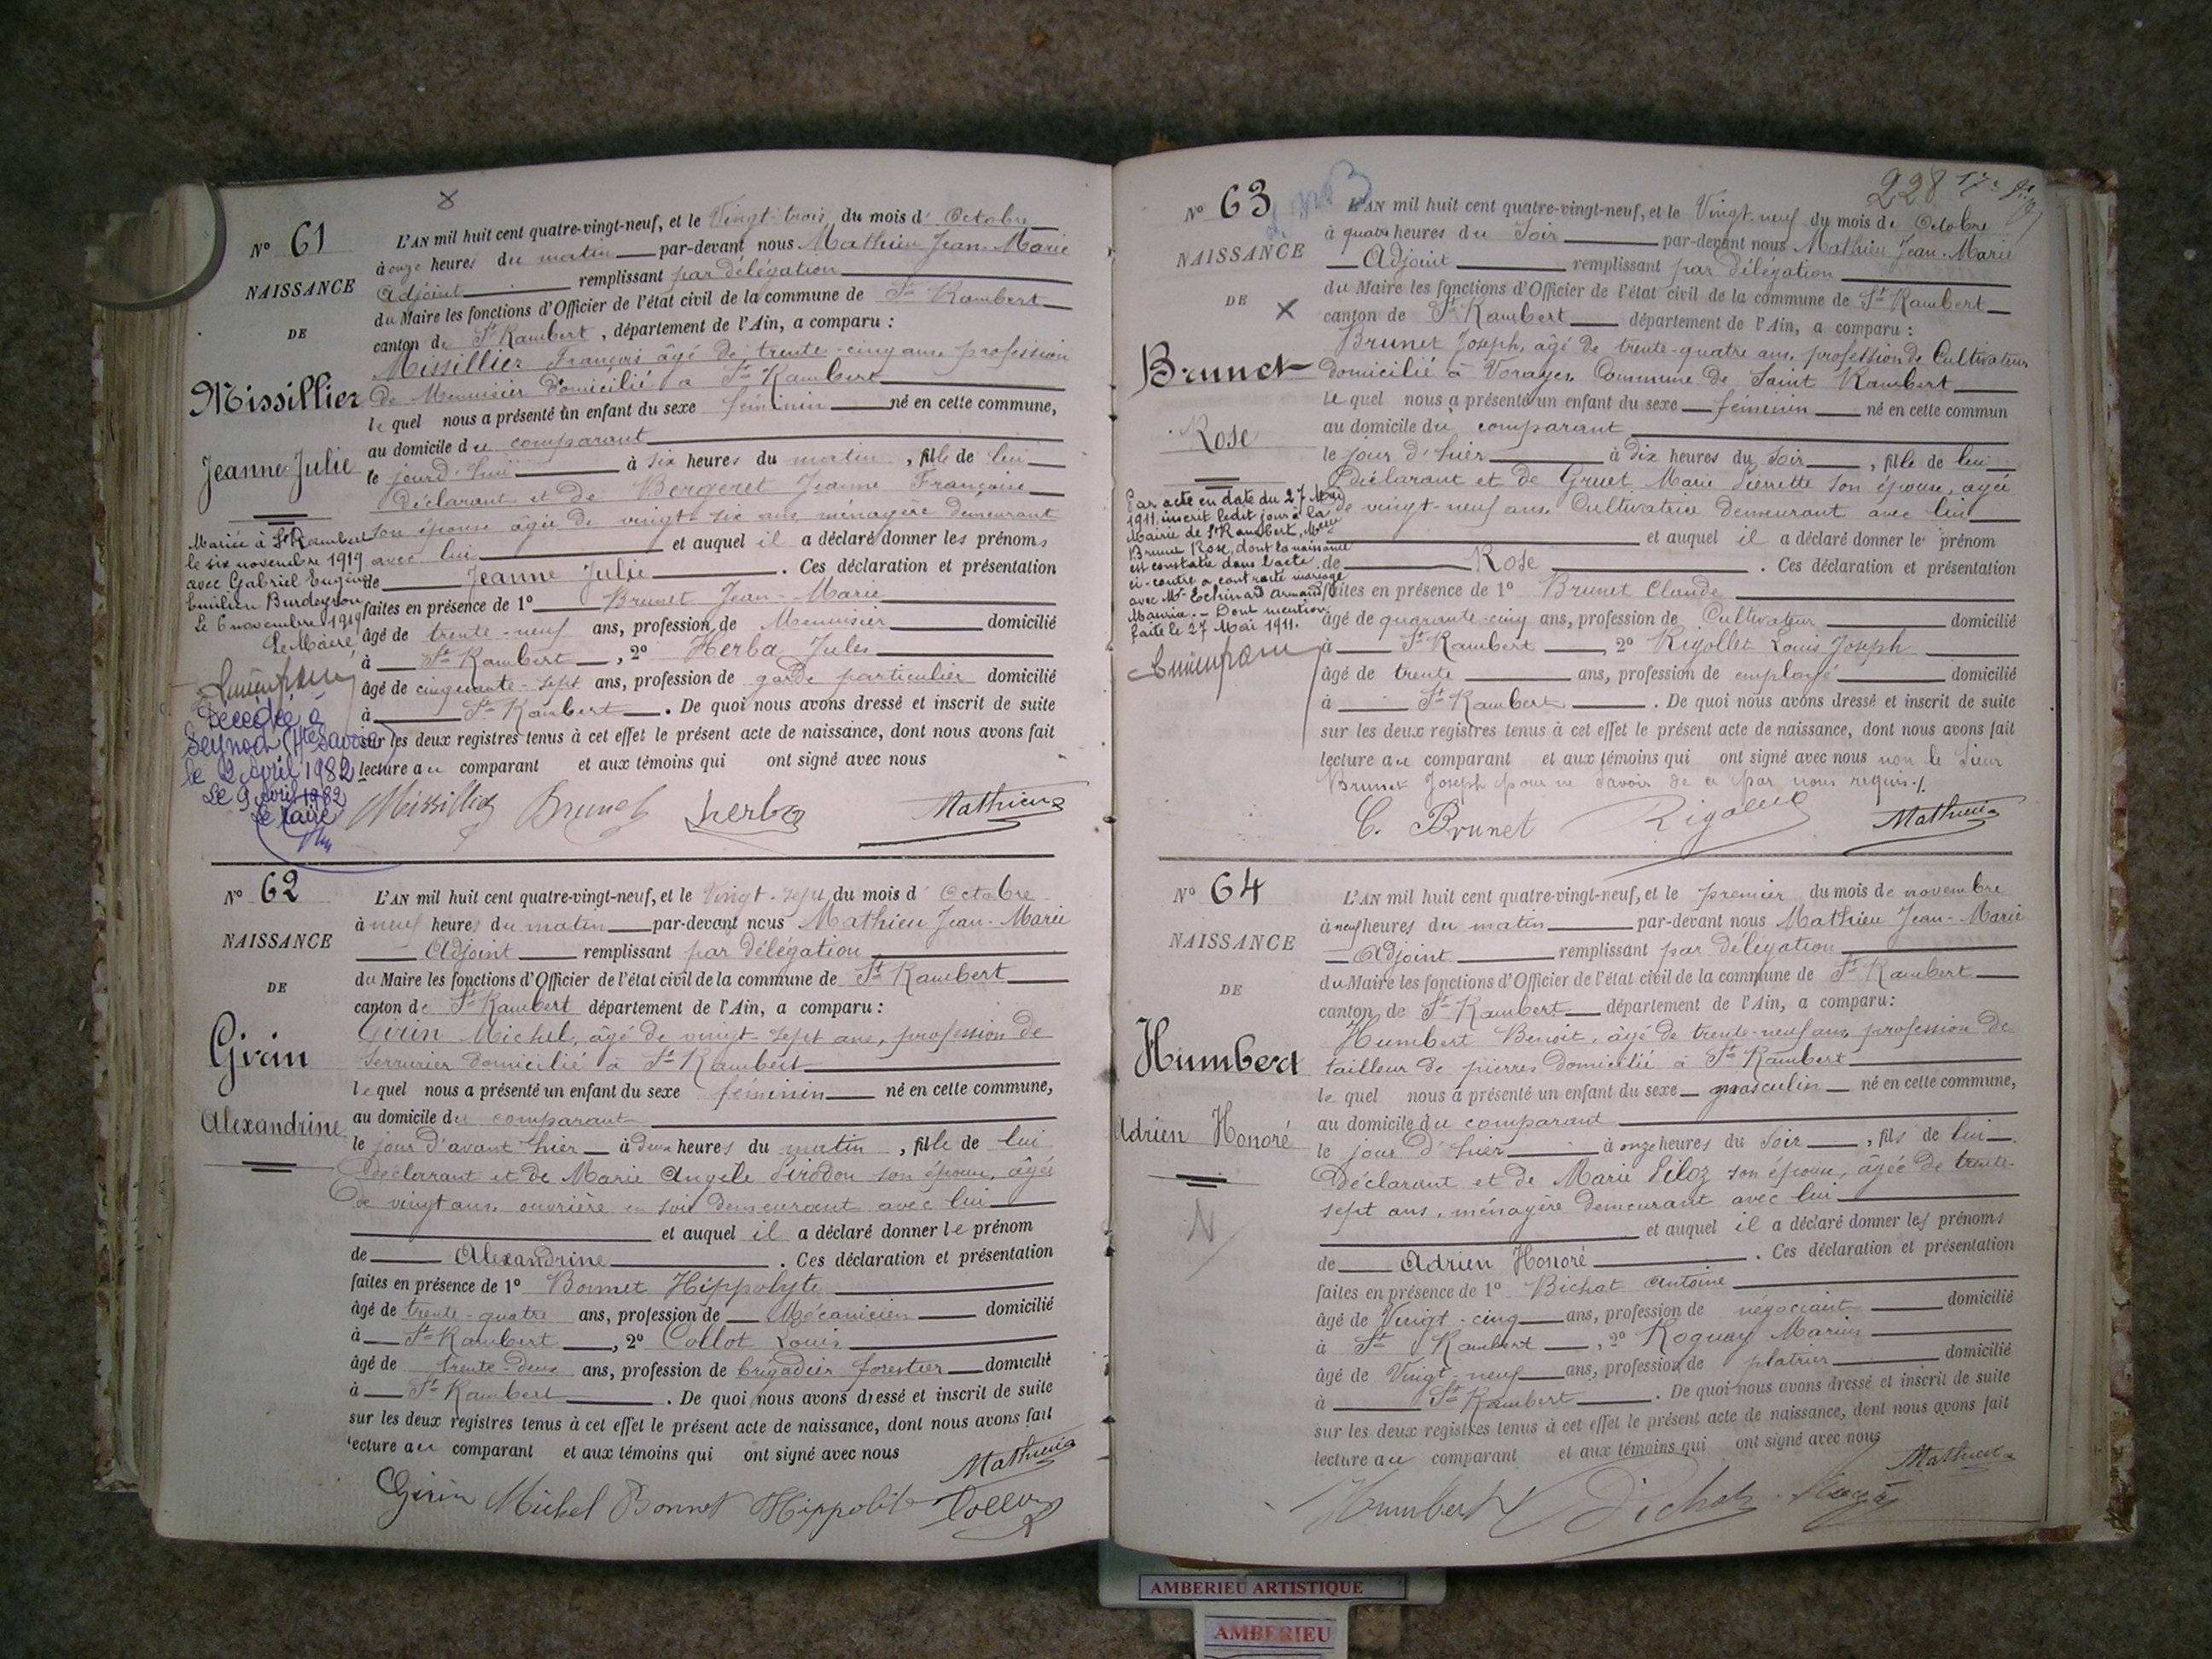 Nº 61
NAISSANCE
DE
Missillier
Jeanne Julie
Mariée à St Rambert
le six novembre 1919
avec Gabriel Eugène
Emilien Burdeyron
Le 6 novembre 1919
Le Maire
Décédée à
Seynod (Hte Savoie)
le 2 Avril 1982
Le 9 Avril 1982
Le Maire
L'AN mil huit cent quatre-vingt-neuf, et le Vingt-trois du mois d'Octobre
à onze heures du matin par-devant nous Mathieu Jean-Marie
Adjoint remplissant par délégation
du Maire les fonctions d'Officier de l'état civil de la commune de St Rambert
canton de St Rambert, département de l'Ain, a comparu :
Missillier François âgé de trente-cinq ans, profession
de Menuisier domicilié à St Rambert
lequel nous a présenté un enfant du sexe féminin né en cette commune,
au domicile du comparant
le jourd'hui à six heures du matin, fille de lui
déclarant et de Bergeret Jeanne Françoise
son épouse âgée de vingt-six ans, ménagère demeurant
avec lui et auquel il a déclaré donner les prénoms
de Jeanne Julie. Ces déclaration et présentation
faites en présence de 1º Brunet Jean-Marie
âgé de trente-neuf ans, profession de Menuisier domicilié
à St Rambert, 2º Herba Jules
âgé de cinquante-sept ans, profession de garde particulier domicilié
à St Rambert. De quoi nous avons dressé et inscrit de suite
sur les deux registres tenus à cet effet le présent acte de naissance, dont nous avons fait
lecture au comparant et aux témoins qui ont signé avec nous
Missillier Brunet herba Mathieu
Nº 62
NAISSANCE
DE
Girin
Alexandrine
L'AN mil huit cent quatre-vingt-neuf, et le Vingt-sept du mois d'Octobre
à neuf heures du matin par-devant nous Mathieu Jean-Marie
Adjoint remplissant par délégation
du Maire les fonctions d'Officier de l'état civil de la commune de St Rambert
canton de St Rambert département de l'Ain, a comparu :
Girin Michel, âgé de vingt-sept ans, profession de
serrurier domicilié à St Rambert
lequel nous a présenté un enfant du sexe féminin né en cette commune,
au domicile du comparant
le jour d'avant hier à deux heures du matin, fille de lui
Déclarant et de Marie Angèle Sirodou son épouse, âgée
de vingt ans, ouvrière en soie demeurant avec lui
et auquel il a déclaré donner le prénom
de Alexandrine. Ces déclaration et présentation
faites en présence de 1º Bonnet Hippolyte
âgé de trente-quatre ans, profession de Mécanicien domicilié
à St Rambert, 2º Collot Louis
âgé de trente-deux ans, profession de brigadier forestier domicilié
à St Rambert. De quoi nous avons dressé et inscrit de suite
sur les deux registres tenus à cet effet le présent acte de naissance, dont nous avons fait
lecture au comparant et aux témoins qui ont signé avec nous
Mathieu
Girin Michel Bonnet Hippolite Collot
228
Nº 63
NAISSANCE
DE
Brunet
Rose
Par acte en date du 27 Mai
1911, inscrit ledit jour à la
Mairie de St Rambert, Melle
Brunet Rose, dont la naissance
est constatée dans l'acte
ci-contre a contracté mariage
avec Mr Echinard Armand
Maurice. - Dont mention
faite le 27 Mai 1911.
L'AN mil huit cent quatre-vingt-neuf, et le Vingt-neuf du mois de Octobre
à quatre heures du soir par-devant nous Mathieu Jean-Marie
Adjoint remplissant par délégation
du Maire les fonctions d'Officier de l'état civil de la commune de St Rambert
canton de St Rambert département de l'Ain, a comparu :
Brunet Joseph, âgé de trente-quatre ans, profession de Cultivateur
domicilié à Vorages Commune de Saint Rambert
lequel nous a présenté un enfant du sexe féminin né en cette commun
au domicile du comparant
le jour d'hier à dix heures du soir, fille de lui
Déclarant et de Gruet Marie Pierrette son épouse, âgée
de vingt-neuf ans, Cultivatrice demeurant avec lui
et auquel il a déclaré donner le prénom
de Rose. Ces déclaration et présentation
faites en présence de 1º Brunet Claude
âgé de quarante-cinq ans, profession de Cultivateur domicilié
à St Rambert, 2º Rigollet Louis Joseph
âgé de trente ans, profession de employé domicilié
à St Rambert. De quoi nous avons dressé et inscrit de suite
sur les deux registres tenus à cet effet le présent acte de naissance, dont nous avons fait
lecture au comparant et aux témoins qui ont signé avec nous non le sieur
Brunet Joseph pour ne savoir de ce par nous requis./.
C. Brunet Rigollet Mathieu
Nº 64
NAISSANCE
DE
Humbert
Adrien Honoré
L'AN mil huit cent quatre-vingt-neuf, et le premier du mois de novembre
à neuf heures du matin par-devant nous Mathieu Jean-Marie
Adjoint remplissant par délégation
du Maire les fonctions d'Officier de l'état civil de la commune de St Rambert
canton de St Rambert département de l'Ain, a comparu :
Humbert Benoit, âgé de trente-neuf ans, profession de
tailleur de pierres domicilié à St Rambert
lequel nous a présenté un enfant du sexe masculin né en cette commune,
au domicile du comparant
le jour d'hier à onze heures du soir, fils de lui
Déclarant et de Marie Piloz son épouse, âgée de trente-
sept ans, ménagère demeurant avec lui
et auquel il a déclaré donner les prénoms
de Adrien Honoré. Ces déclaration et présentation
faites en présence de 1º Bichat Antoine
âgé de Vingt-cinq ans, profession de négociant domicilié
à St Rambert, 2º Roguay Marius
âgé de Vingt-neuf ans, profession de platrier domicilié
à St Rambert. De quoi nous avons dressé et inscrit de suite
sur les deux registres tenus à cet effet le présent acte de naissance, dont nous avons fait
lecture au comparant et aux témoins qui ont signé avec nous
Mathieu
Humbert Bichat
AMBERIEU ARTISTIQUE
AMBERIEU